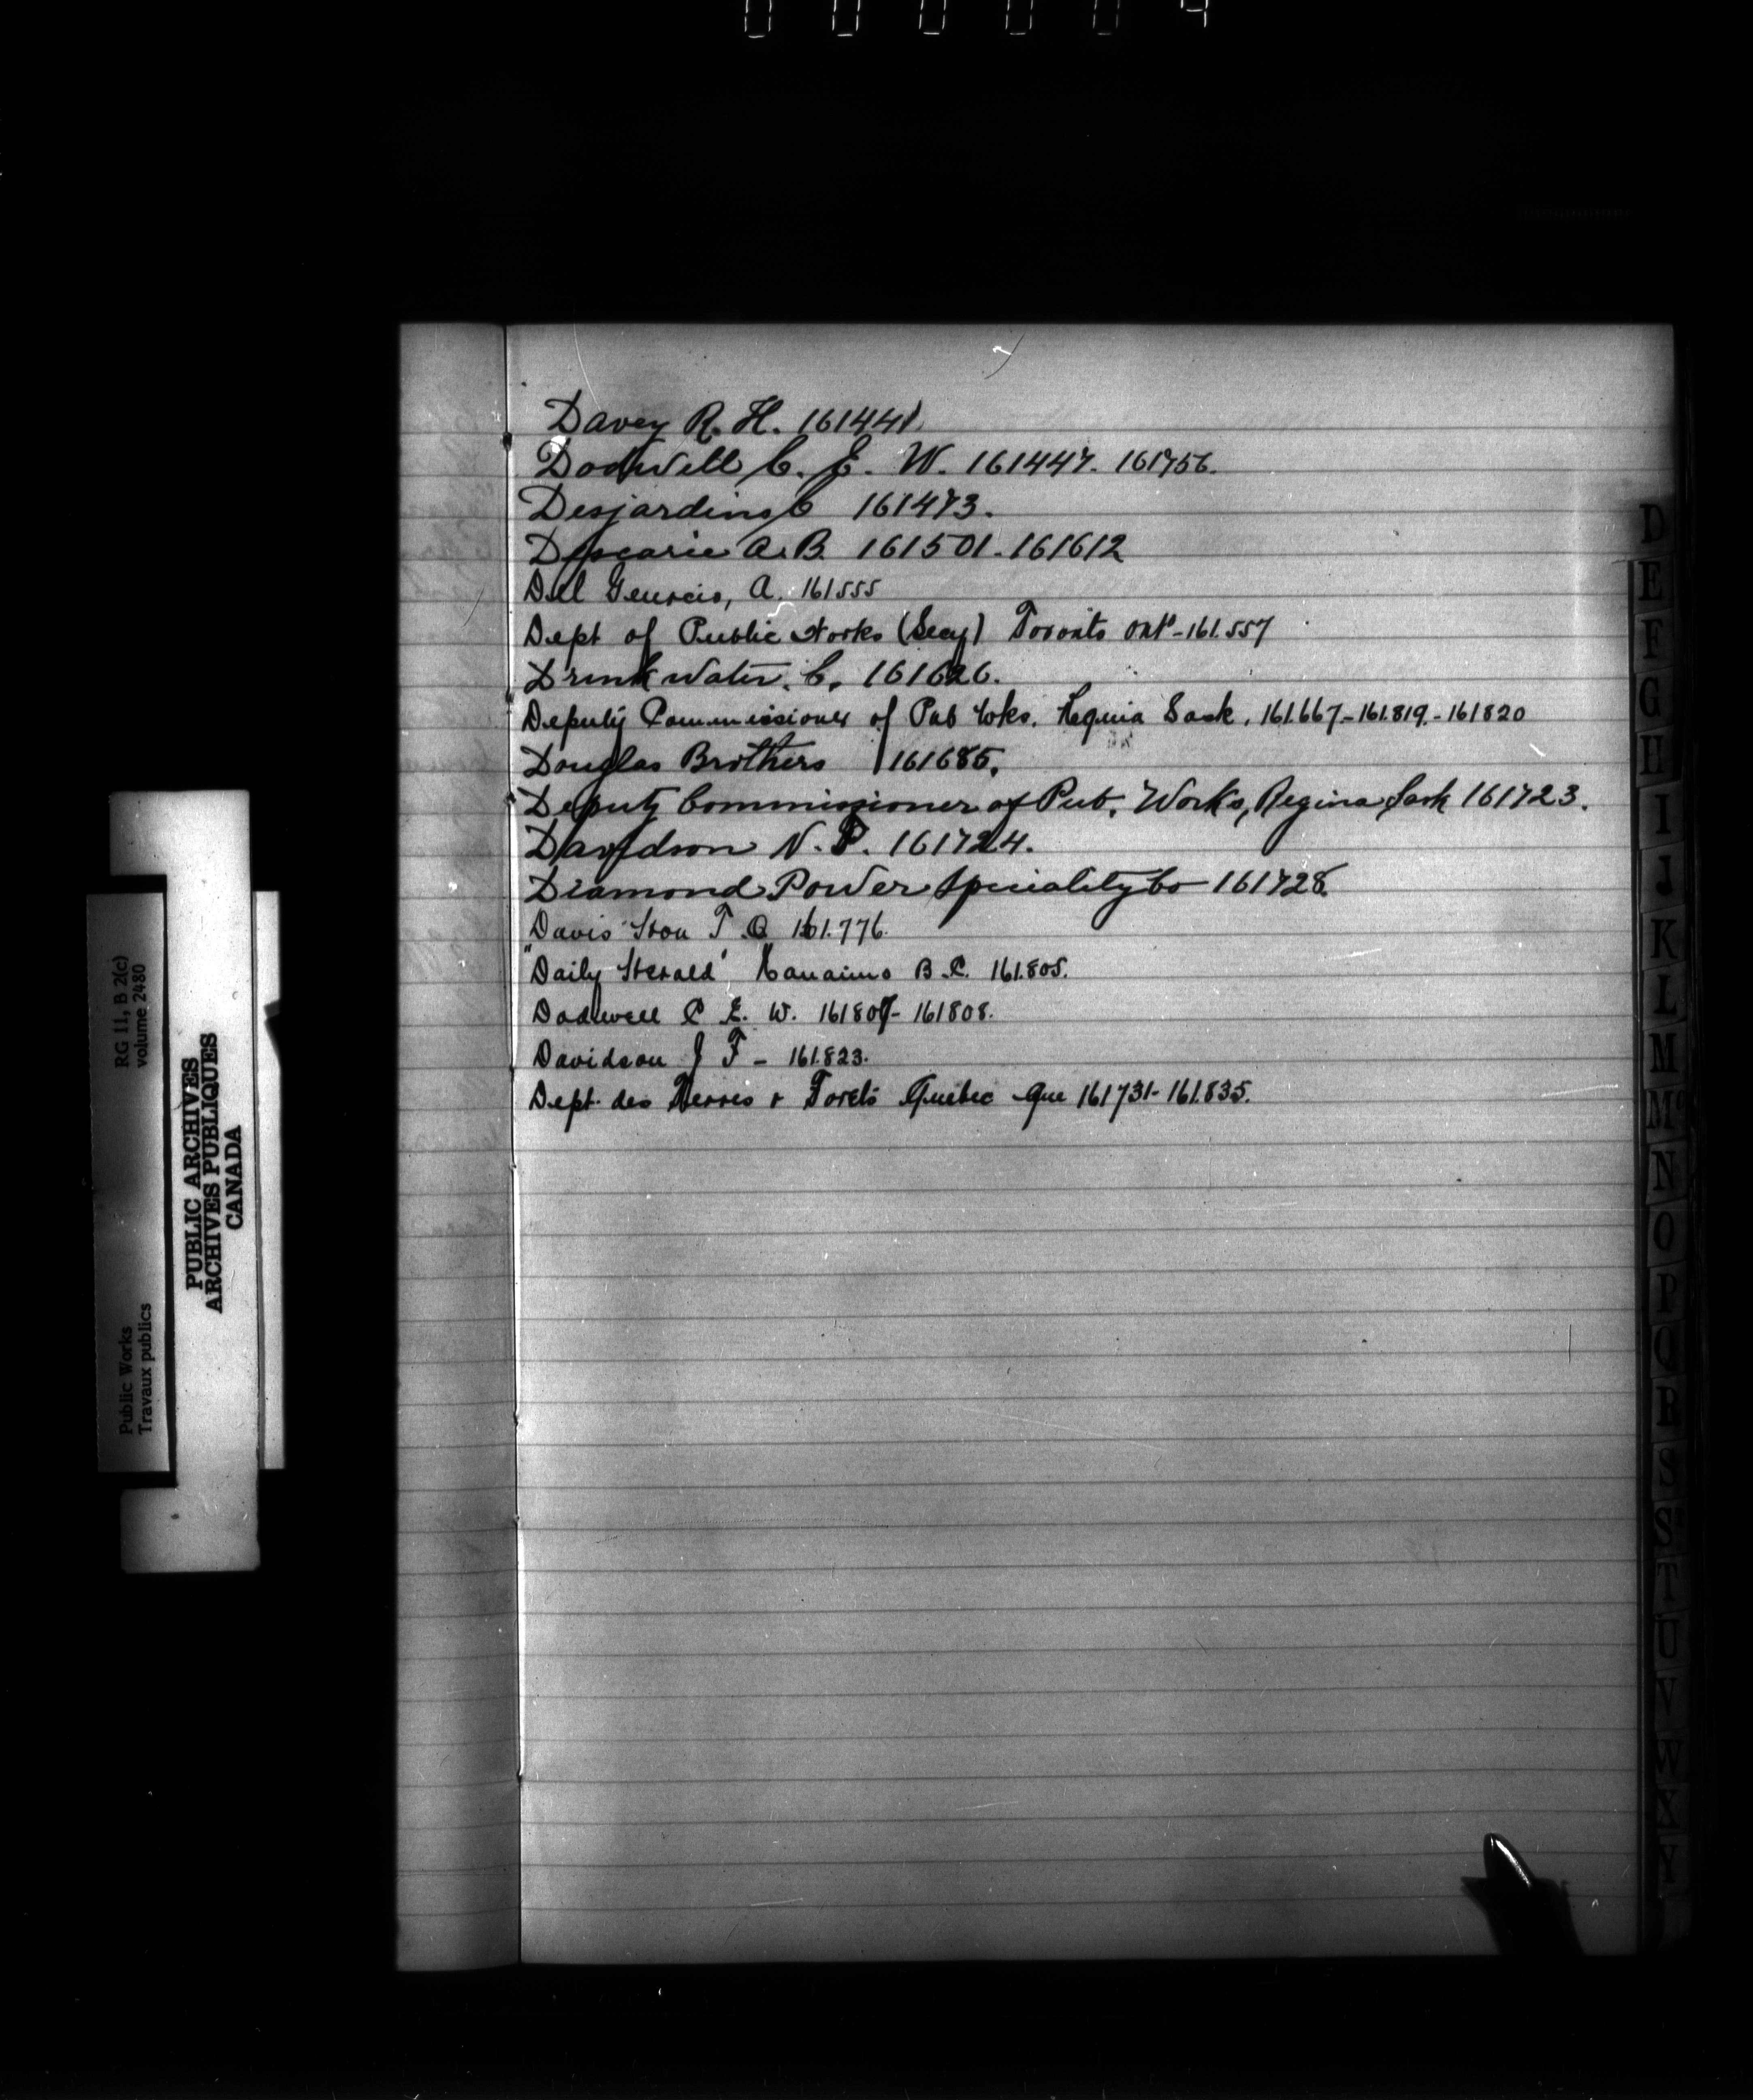 Davey R. H. 161441
Dodwell C. E. W. 161447. 161756.
Desjardins C 161473.
A. B. 161501 - 161612
Del A. 161555
Dept of Public Works (Secy) Toronto Ont - 161.557
Drinkwater. C. 161626.
Deputy Commissioner of Pub Wks. Regina Sask. 161.667 - 161.819. - 161820
Douglas Brothers 161685.
Deputy Commissioner of Pub. Works, Regina Sask 161723.
Davidson N. P. 161724.
Diamond Power Speciality Co 161728.
Davis Hon T. O 161.776.
"Daily Herald" Nanaimo B. C. 161.805.
Dodwell C E. W. 161807 - 161808.
Davidson J F - 161.823.
Dept. des Terres & Forets Quebec Que 161731 - 161.835.
D
E
F
G
H
I
J
K
L
M
Mc
N
O
P
Q
R
S
St
T
U
V
W
X
Y
RG 11, B 2(c)
volume 2480
Public Works
Travaux publics
PUBLIC ARCHIVES
ARCHIVES PUBLIQUES
CANADA